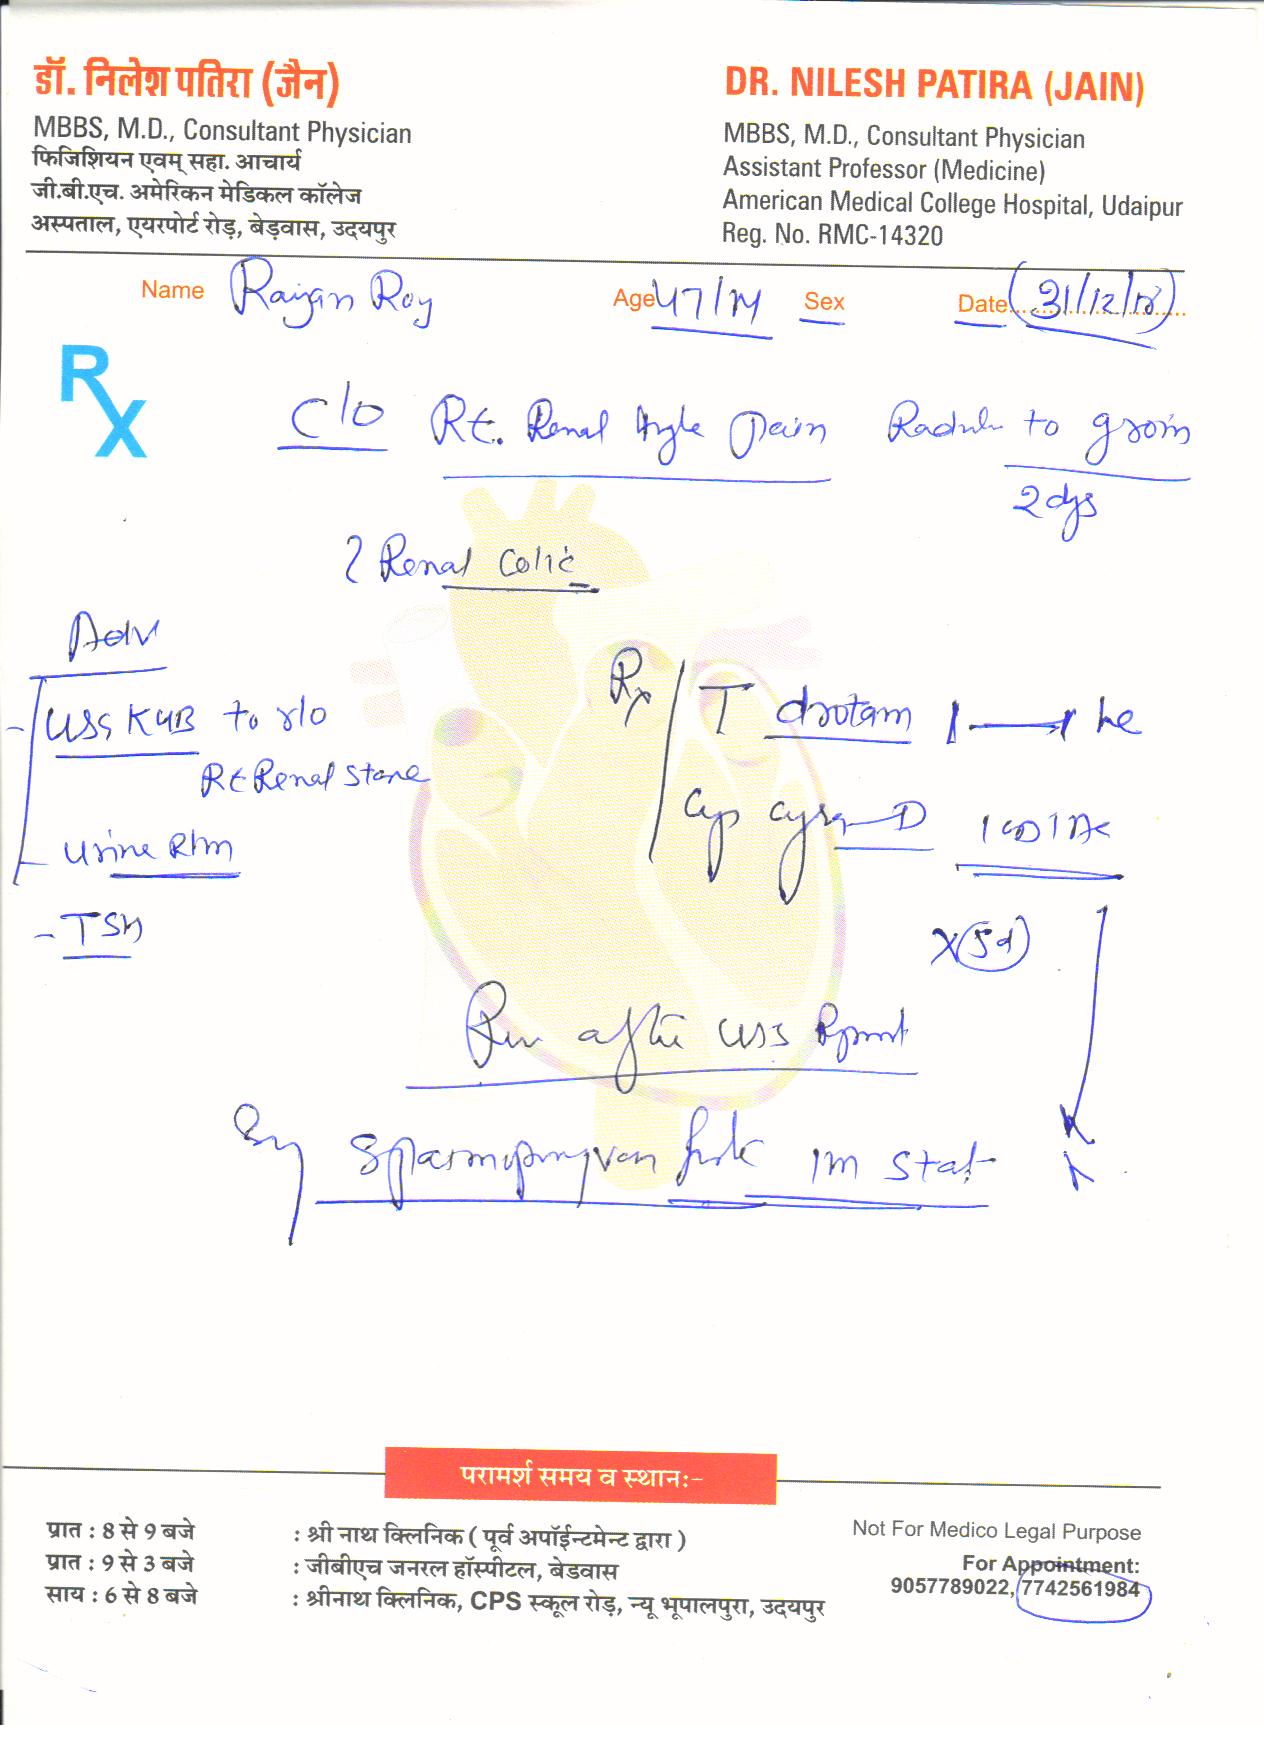 डॉ. निलेश पतिरा (जैन)
MBBS, M.D., Consultant Physician
फिजिशियन एवम् सहा. आचार्य
जी.बी.एच. अमेरिकन मेडिकल कॉलेज
अस्पताल, एयरपोर्ट रोड़, बेड़वास, उदयपुर
DR. NILESH PATIRA (JAIN)
MBBS, M.D., Consultant Physician
Assistant Professor (Medicine)
American Medical College Hospital, Udaipur
Reg. No. RMC-14320
Name Rajan Roy Age 47/M Sex Date 31/12/18
Rx
C/O Rt. Renal Angle Pain to groin
2 dys
? Renal Colic
Adv
- USG KUB to r/o
Rt Renal Stone
- Urine R/m
- TSH
Rx
T drotam
Cap D
x (5d)
Rev after USG Report
im stat
परामर्श समय व स्थानः-
प्रात : 8 से 9 बजे : श्री नाथ क्लिनिक ( पूर्व अपॉईन्टमेन्ट द्वारा )
प्रात : 9 से 3 बजे : जीबीएच जनरल हॉस्पीटल, बेडवास
साय : 6 से 8 बजे : श्रीनाथ क्लिनिक, CPS स्कूल रोड़, न्यू भूपालपुरा, उदयपुर
Not For Medico Legal Purpose
For Appointment:
9057789022, 7742561984